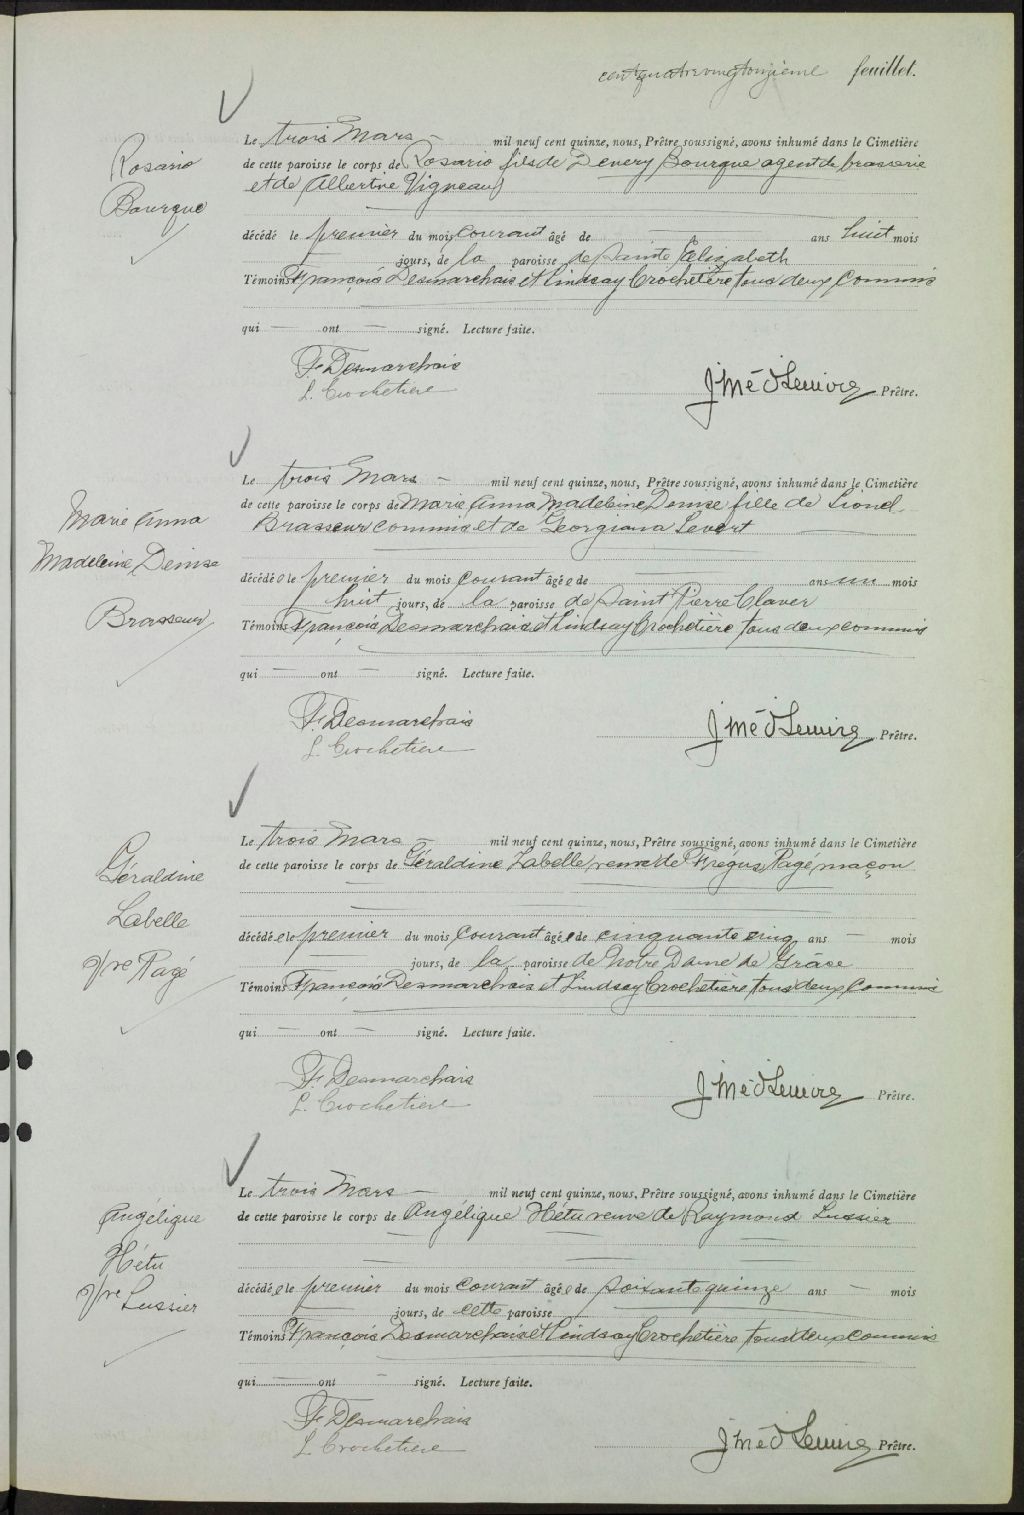 centquatrevingtonzième feuillet.
Rosario
Bourque
Le trois Mars — mil neuf cent quinze, nous, Prêtre soussigné, avons inhumé dans le Cimetière
de cette paroisse le corps de Rosario fils de Dénery Bourque agent de brasserie
et de Albertine Vigneau
décédé le premier du mois courant âgé de — ans huit mois
— jours, de la paroisse de Sainte Elizabeth
Témoins François Desmarchais et Lindsay Crochetière tous deux commis
qui — ont — signé. Lecture faite.
F. Desmarchais
L. Crochetiere
J Mé O Lemire Prêtre.
Marie Anna
Madeleine Denise
Brasseur
Le trois Mars — mil neuf cent quinze, nous, Prêtre soussigné, avons inhumé dans le Cimetière
de cette paroisse le corps de Marie Anna Madeleine Denise fille de Lionel
Brasseur commis et de Georgiana Levert
décédée le premier du mois courant âgée de — ans un mois
huit jours, de la paroisse de Saint Pierre Claver
Témoins François Desmarchais et Lindsay Crochetière tous deux commis
qui — ont — signé. Lecture faite.
F. Desmarchais
L. Crochetiere
J Mé O Lemire Prêtre.
Géraldine
Labelle
Vve Pagé
Le trois Mars — mil neuf cent quinze, nous, Prêtre soussigné, avons inhumé dans le Cimetière
de cette paroisse le corps de Géraldine Labelle, veuve de Frégus Pagé, maçon
décédée le premier du mois courant âgée de cinquante cinq ans — mois
— jours, de la paroisse de Notre Dame de Grâce
Témoins François Desmarchais et Lindsay Crochetière tous deux commis
qui — ont — signé. Lecture faite.
F. Desmarchais
L. Crochetiere
J Mé O Lemire Prêtre.
Angélique
Hétu
Vve Lussier
Le trois Mars — mil neuf cent quinze, nous, Prêtre soussigné, avons inhumé dans le Cimetière
de cette paroisse le corps de Angélique Hétu veuve de Raymond Lussier
décédée le premier du mois courant âgée de soixante quinze ans — mois
— jours, de cette paroisse —
Témoins François Desmarchais et Lindsay Crochetière tous deux commis
qui — ont — signé. Lecture faite.
F. Desmarchais
L. Crochetiere
J Mé O Lemire Prêtre.